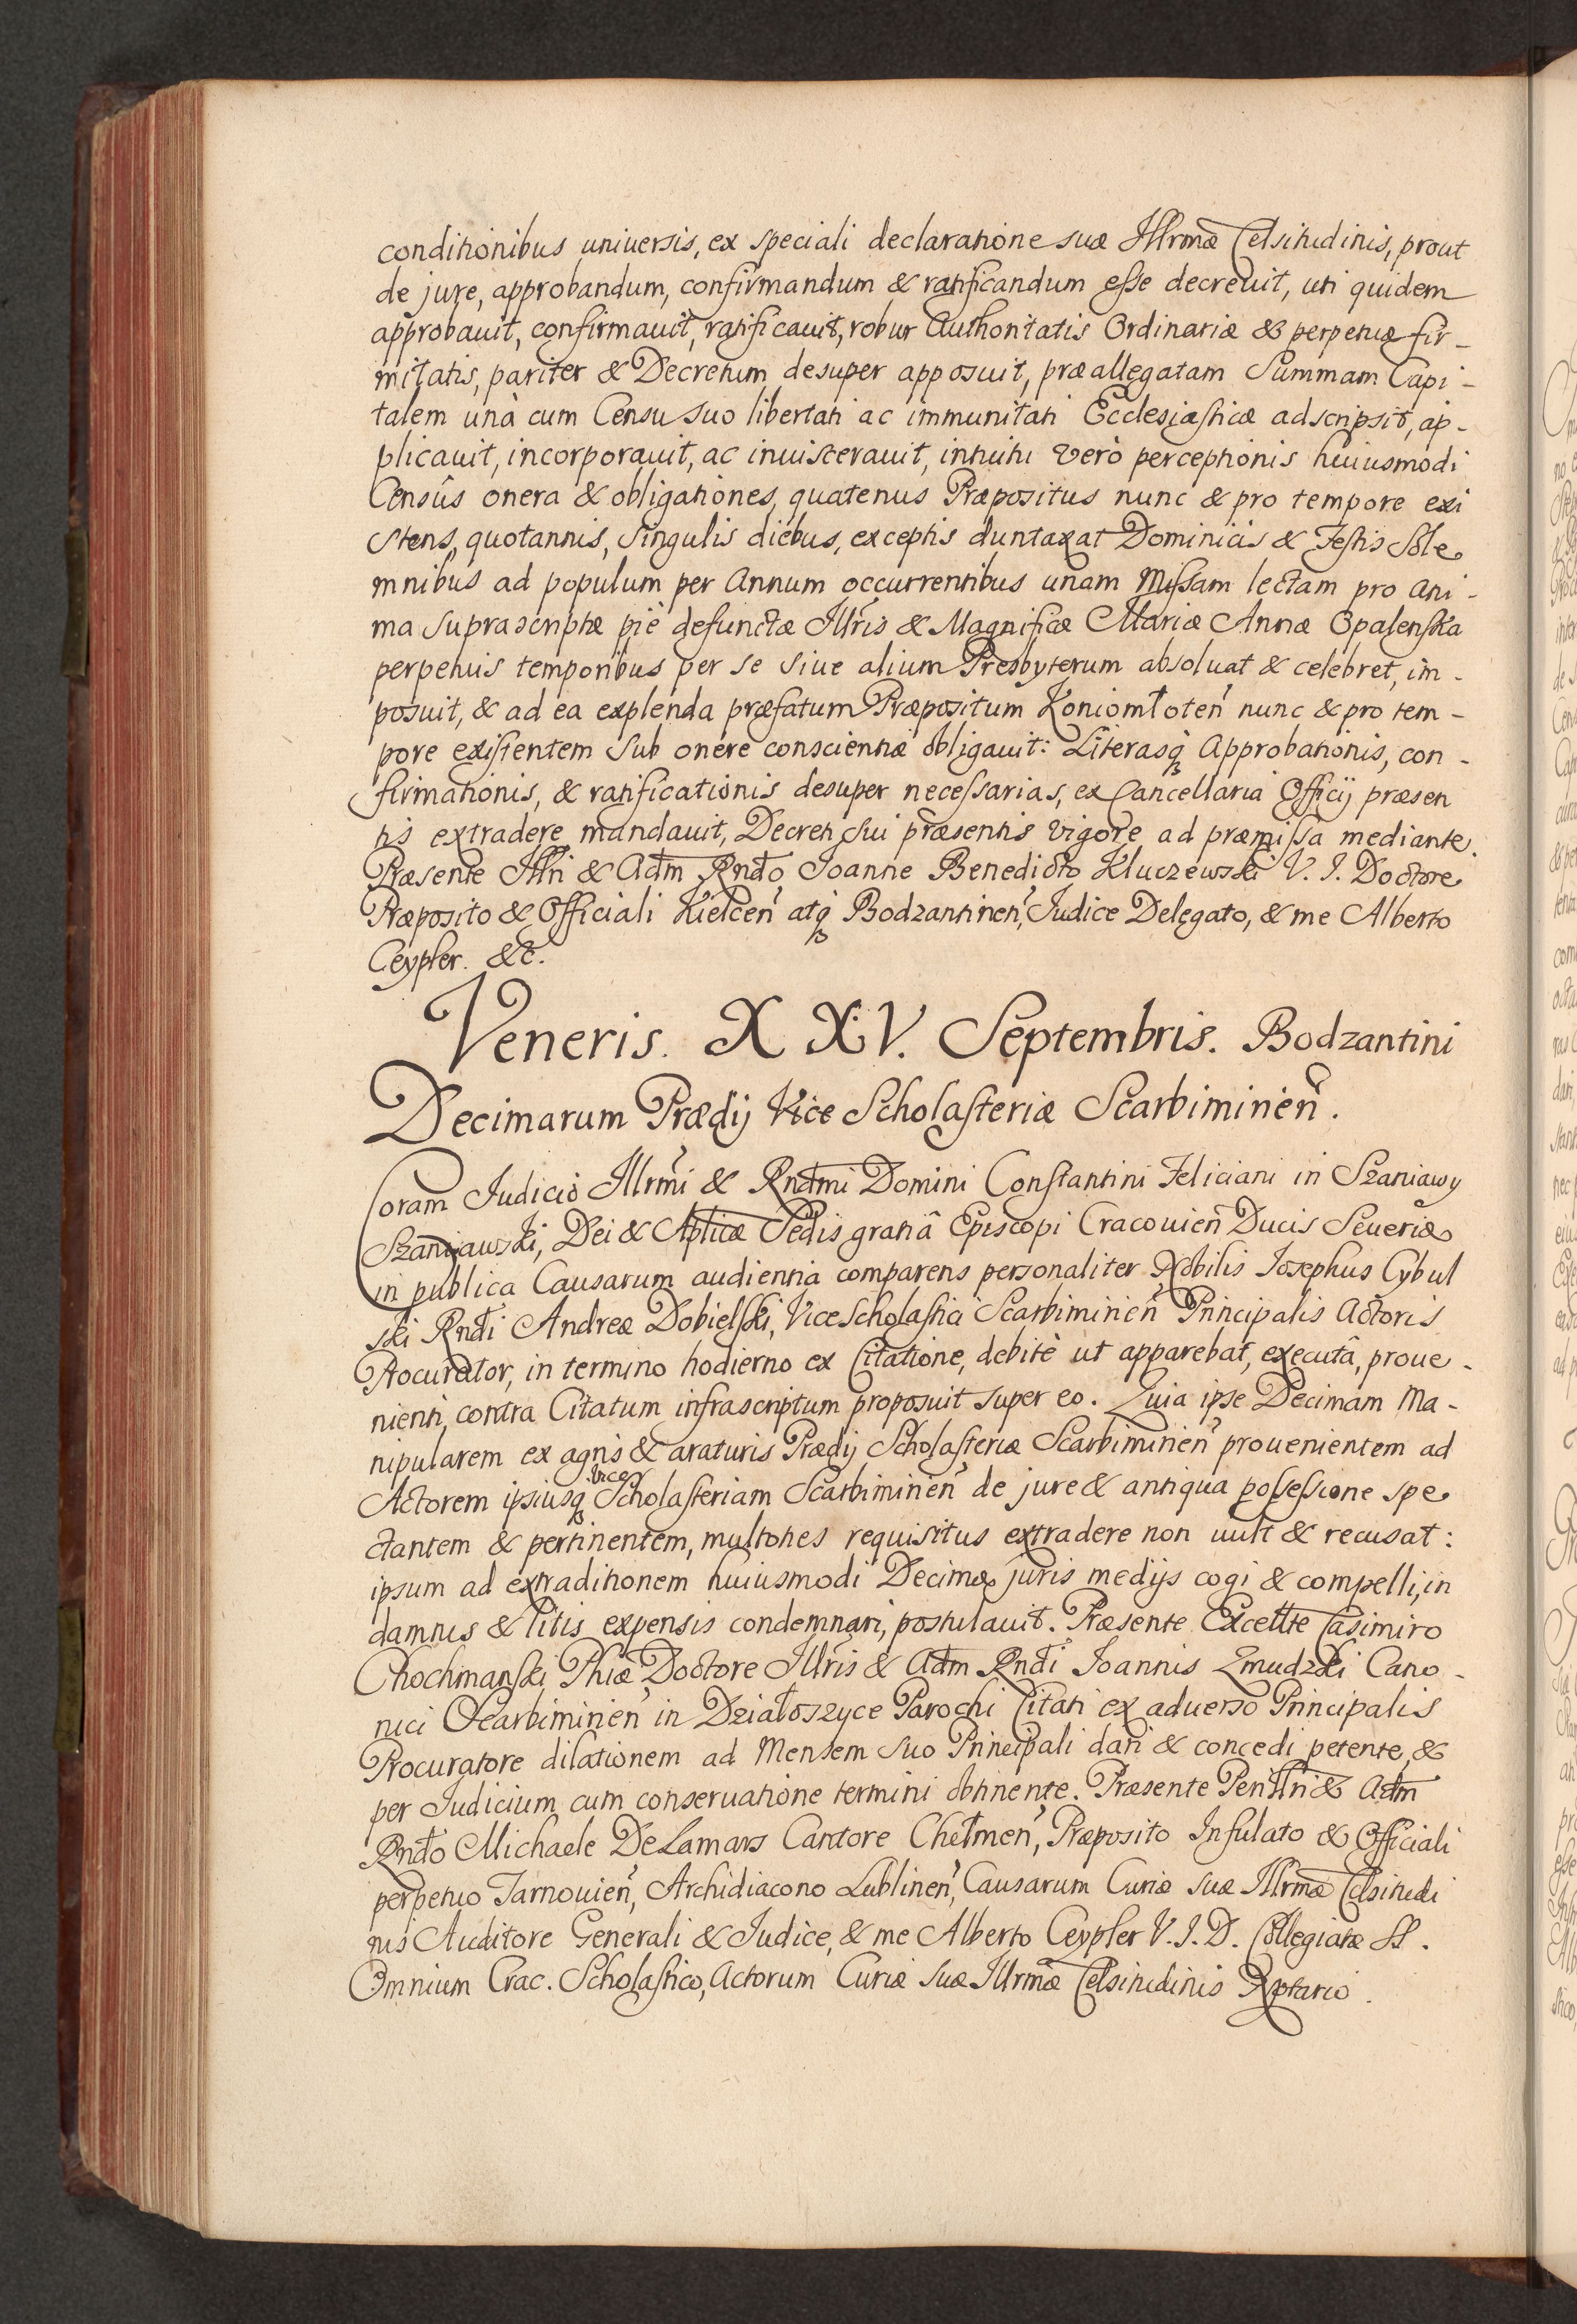 conditionibus uniuersis, ex speciali declaratione suæ Illrmæ Celsitudinis, prout
de jure, approbandum, confirmandum & ratificandum esse decreuit, uti quidem
approbauit, confirmauit, ratificauit, robur Authoritatis Ordinariæ & perpetuæ fir-
mitatis, pariter & Decretum desuper apposuit, præallegatam Summam Capi-
talem unà cum Censu suo libertati ac immunitati Ecclesiasticæ adscripsit, ap-
plicauit, incorporauit, ac inuiscerauit, intuitu verò perceptionis huiusmodi
Censûs onera & obligationes, quatenus Præpositus nunc & pro tempore exi
stens, quotannis, singulis diebus, exceptis duntaxat Dominicis & Festis Sole
mnibus ad populum per Annum occurrentibus unam Missam lectam pro ani-
ma suprascriptæ piè defunctæ Illris & Magnificæ Mariæ Annæ Opalenska
perpetuis temporibus per se siue alium Presbyterum absoluat & celebret, im-
posuit, & ad ea explenda præfatum Præpositum Koniomłoten nunc & pro tem-
pore existentem sub onere conscientiæ obligauit: Literasq Approbationis, con-
firmationis, & ratificationis desuper necessarias, ex Cancellaria Officij præsen
tis extradere mandauit, Decreti sui præsentis vigore ad præmissa mediante.
Præsente Illri & Adm Rndo Ioanne Benedicto Kluczewski V. I. Doctore
Præposito & Officiali Kielcen atq Bodzantinen, Iudice Delegato, & me Alberto
Ceypler. &c.
Veneris. XXV. Septembris. Bodzantini
Decimarum Prædij Vice Scholasteriæ Scarbiminen.
Coram Iudicio Illrmi & Rndmi Domini Constantini Feliciani in Szaniawy
Szaniawski, Dei & Aplicæ Sedis gratiâ Episcopi Cracouien Ducis Seueriæ
in publica Causarum audientia comparens personaliter Nobilis Iosephus Cybul
ski Rndi Andreæ Dobielski, Vicescholastici Scarbiminen Principalis Actoris
Procurator, in termino hodierno ex Citatione, debitè ut apparebat, executâ, proue-
nienti, contra Citatum infrascriptum proposuit super eo. Quia ipse Decimam Ma-
nipularem ex agris & araturis Prædij Scholasteriæ Scarbiminen prouenientem ad
Actorem ipsiusq vice Scholasteriam Scarbiminen de jure & antiqua possessione spe
ctantem & pertinentem, multoties requisitus extradere non uult & recusat:
ipsum ad extraditionem huiusmodi Decimæ juris medijs cogi & compelli, in
damnis & litis expensis condemnari, postulauit. Præsente Excellte Casimiro
Chochmanski Phiæ Doctore Illris & Adm Rndi Ioannis Zmudzki Cano-
nici Scarbiminen in Działoszyce Parochi Citati ex aduerso Principalis
Procuratore dilationem ad Mensem suo Principali dari & concedi petente, &
per Iudicium cum conseruatione termini obtinente. Præsente Perillri & Adm
Rndo Michaele De Lamars Cantore Chełmen, Præposito Infulato & Officiali
perpetuo Tarnouien, Archidiacono Lublinen, Causarum Curiæ suæ Illrmæ Celsitudi
nis Auditore Generali & Iudice, & me Alberto Ceypler V. I. D. Collegiatæ SS.
Omnium Crac. Scholastico, Actorum Curiæ suæ Illrmæ Celsitudinis Notario.